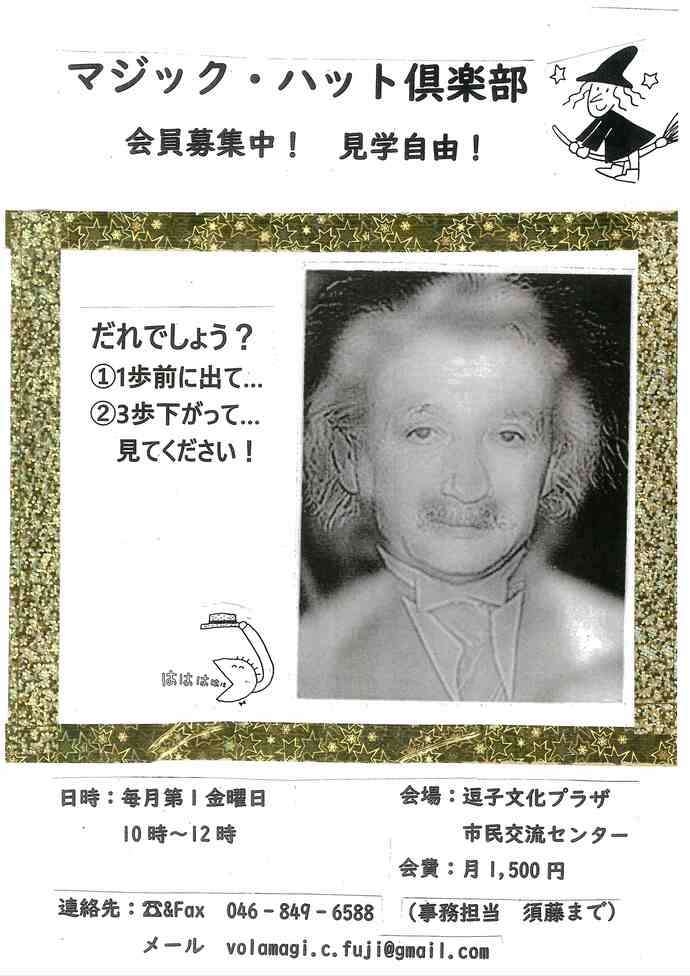 マジック・ハット倶楽部
会員募集中！　見学自由！
だれでしょう？
①1歩前に出て…
②3歩下がって…
見てください！
はははははは
日時：毎月第1金曜日
10時～12時
会場：逗子文化プラザ
市民交流センター
会費：月1,500円
連絡先：☎&Fax　046－849－6588　（事務担当　須藤まで）
メール　volamagi.c.fuji@gmail.com